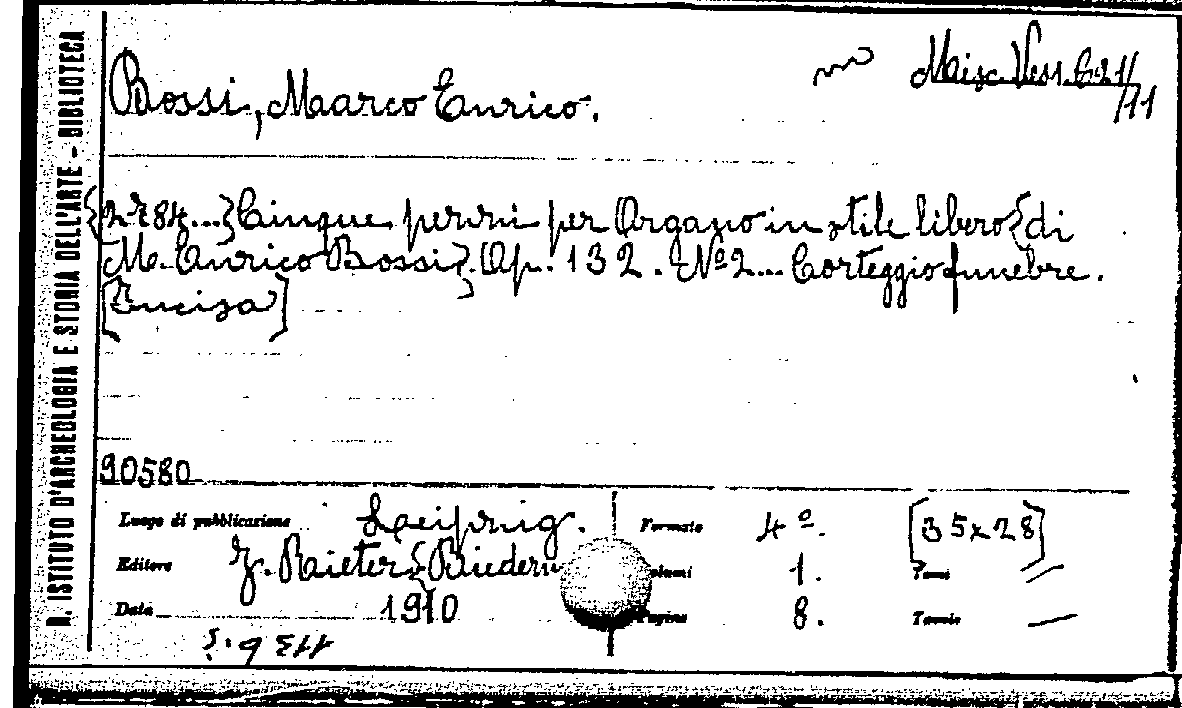 R. ISTITUTO D'ARCHEOLOGIA E STORIA DELL'ARTE - BIBLIOTECA
Misc. Vess. C. 21/
/11
Bossi, Marco Enrico.
Cinque pezzi per Organo in stile libero {di
M. Enrico Bossi}. Op. 132. Nº 2... Corteggio funebre.
[Incisa]
90580
Luogo di pubblicazione Leipzig. Formato 4º. [35x28]
Editore J. Rieter Volumi 1. Tomi —
Data 1910 Pagine 8. Tavole —